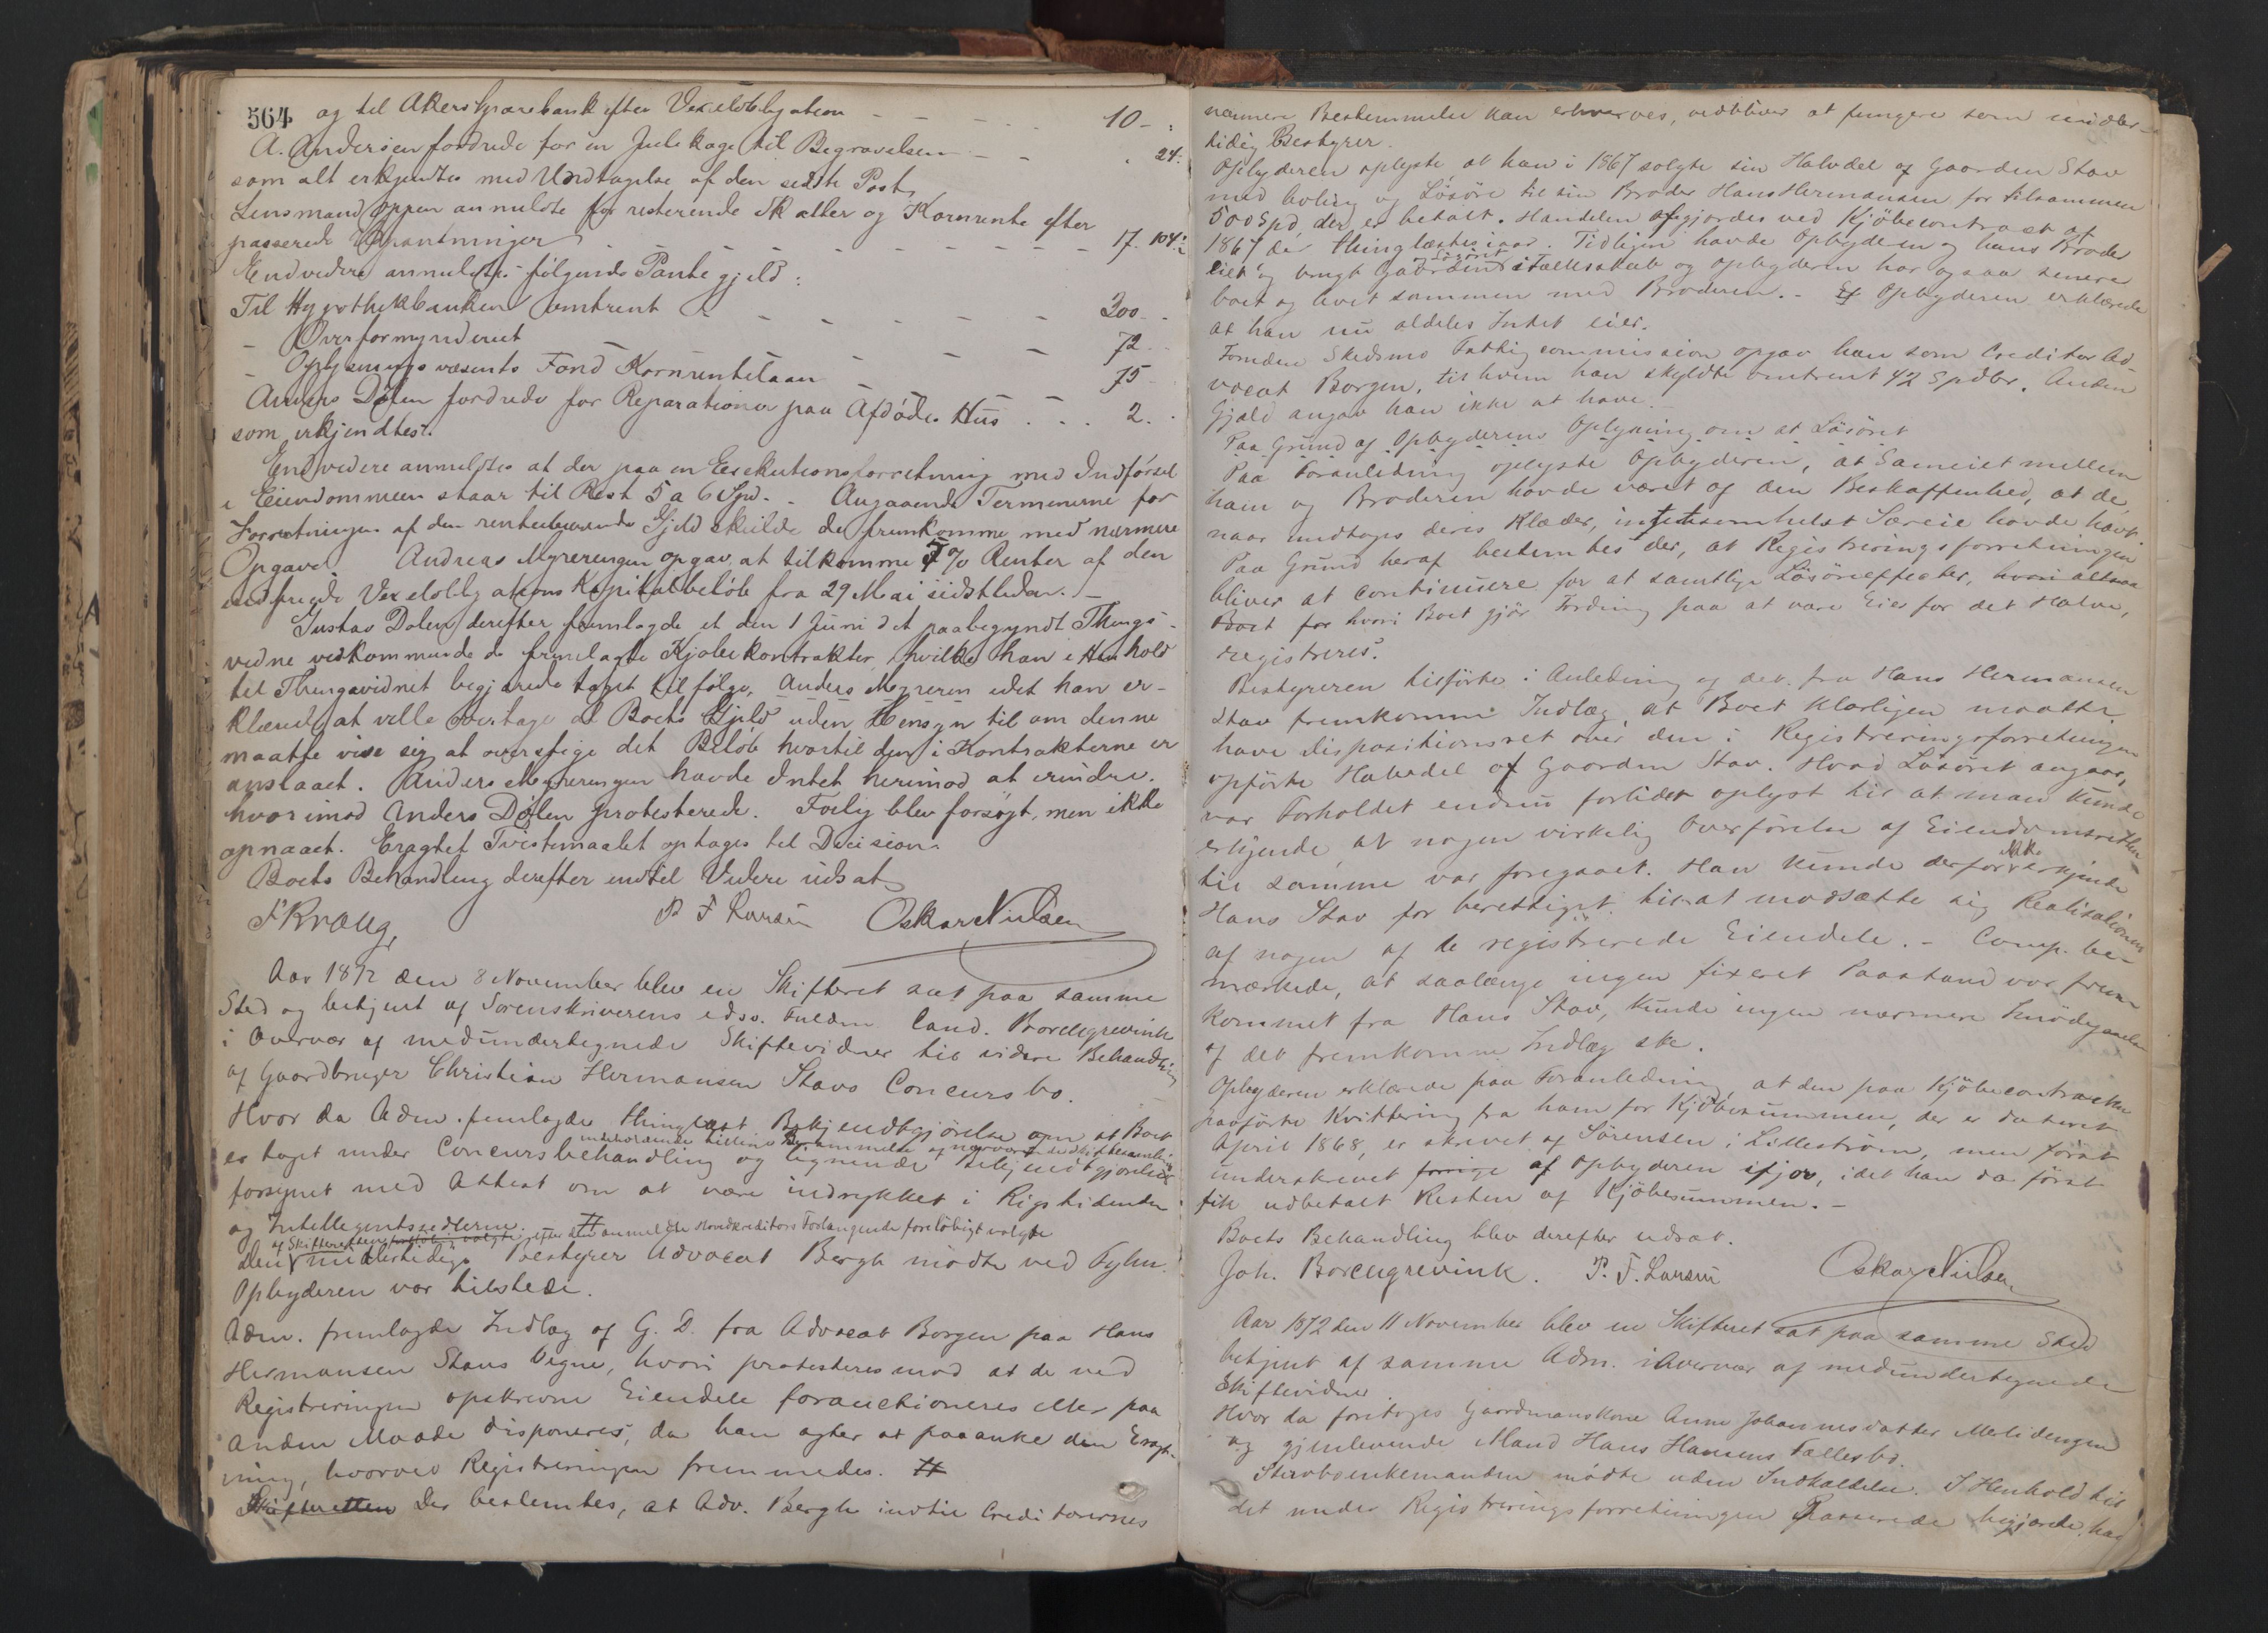 564 og til Akers Sparebank efter Vexelobligation - - - - 10 - :
A. Andersen fordrede for en Julekage til Begravelsen - - " 24:
som alt erkjendtes med Undtagelse af den sidste Post,
Lensmand Oppen anmeldte for resterende Skatter og Kornrente efter
passerede Udpantninger - - - - - - - 17. 104:
Endvidere anmeldtes følgende Pantegjeld:
Til Hypothekbanken omtrent - - - - - - 300 - -
- Overformynderiet - - - - 72 -
- Oplysningsvæsenets Fond Kornrentelaan - - - 75 -
Anders Dølen fordrede for Reparationer paa Afdødes Hus . . . 2. .
som erkjendtes.
Endvidere anmeldtes at der paa en Exekutionsforretning med Indførsel
i Eiendommen staar til Rest 5 a 6 Spd. - Angaaende Terminerne for
Forrentningen af den rentebærende Gjeld skulde de fremkomme med nærmere
Opgave. Andreas Myrerengen opgav at tilkomme 5 % Renter af den
Vexelobligations Kapitalbeløb fra 29 Mai sidstleden. -
Gustav Dolen derefter fremlagde et den 1 Juni d. A. paabegyndt Things-
vidne vedkommende de fremlagte Kjøbekontrakter, hvilke han i Henhold
til Thingsvidnet begjærede taget tilfølge, Anders Myreren idet han er-
klærede at ville overtage al Boets Gjeld uden Hensyn til om denne
maatte vise sig at overstige det Beløb hvortil den i Kontrakterne er
anslaaet. Anders Myrerengen havde Intet herimod at erindre.
hvorimod Anders Dølen protesterede. Forlig blev forsøgt, men ikke
opnaaet. Eragtet Tvistemaalet optages til Decision.
Boets Behandling derefter indtil Videre udsat
F Knoug, P F Larsen Oskar Nielsen
Aar 1872 den 8 November blev en Skifteret sat paa samme
Sted og betjent af Sorenskriverens edsv. Fuldm. Cand. Borchgrevink
i Overvær af medundertegnede Skiftevidner til videre Behandling
af Gaardbruger Christian Hermansen Stavs Concursbo.
Hvor da Adm. fremlagde thinglæst Bekjendtgjørelse om at Boet
er taget under Concursbehandling og lignende Bekjendtgjørelse
forsynet med Attest om at være indrykket i Rigstidenden
og Intelligentssedlerne. #
af Skifteretten foreløbig valgte efter den anmeldte Hovedkreditors Forlangende foreløbigt valgte
Den midlertidige Bestyrer Advocat Bergh mødte ved Fuldm.
Opbyderen var tilstede.
Adm. fremlagde Indlæg af G. D. fra Advocat Borgen paa Hans
Hermansen Stavs Vegne, hvori protesteres mod at de ved
Registreringen opskrevne Eiendele forauctioneres eller paa
anden Maade disponeres, da han agter at paaanke den Eragt-
ning, hvorved Registreringen fremmedes. #
Skifteretten Der bestemtes, at Adv. Bergh indtil Creditorernes
nærmere Bestemmelse kan erhverves, vedbliver at fungere som midler-
tidig Bestyrer.
Opbyderen oplyste, at han i 1867 solgte sin Halvdel af Gaarden Stav
med boling og Løsøre til sin Broder Hans Hermansen for tilsammen
500 Spd, der er betalt. Handelen afgjordes ved Kjøbecontract af
1867 der thinglæstes iaar. Tidligere havde Opbyderen og hans Broder
eiet og brugt Gaarden og Løsøret i Fællesskab og Opbyderen har ogsaa senere
boet og levet sammen med Broderen. - Opbyderen erklærede
at han nu aldeles Intet eier.
Foruden Skedsmo Fattigcommission opgav han som Creditor Ad-
vocat Borgen, til hvem han skyldte omtrent 42 Spdlr. Anden
Gjæld angav han ikke at have. -
Paa Grund af Opbyderens Oplysning om at Løsøret
Paa Foranledning oplyste Opbyderen, at Sameiet mellem
ham og Broderen havde været af den Beskaffenhed, at de
naar undtages deres Klæder, intetsomhelst Særeie havde havt.
Paa Grund heraf bestemtes der, at Registreringsforretningen
bliver at continuere for at samtlige Løsøreeffecter, hvori altsaa
Boet for hvori Boet gjør Fordring paa at være Eier for det Halve,
registreres.
Bestyreren tilførte i Anledning af det fra Hans Hermansen
Stav fremkomne Indlæg, at Boet klarligen maatte
have Dispositionsret over den i Registreringsforretningen
opførte Halvdel af Gaarden Stav. Hvad Løsøret angaar,
var Forholdet endnu forlidet oplyst til at man kunde
erkjende, at nogen virkelig Overførelse af Eiendomsretten
til samme var foregaaet. Han kunde derfor ikke erkjende
Hans Stav for berettiget til at modsætte sig Realisationen
af nogen af de registrerede Eiendele. - Comp. be-
mærkede, at saalænge ingen fixeret Paastand var frem-
kommet fra Hans Stav, kunde ingen nærmere Imødegaaelse
af det fremkomne Indlæg ske.
Opbyderen erklærede paa Foranledning, at den paa Kjøbecontracten
paaførte Kvittering fra ham for Kjøbesummen, der er dateret
April 1868, er skrevet af Sørensen i Lillestrøm, men først
underskrevet forrige af Opbyderen ifjor, idet han da først
fik udbetalt Resten af Kjøbesummen. -
Boets Behandling blev derefter udsat.
Joh. Borchgrevink. P. F. Larsen Oskar Nielsen
Aar 1872 den 11 November blev en Skifteret sat paa samme Sted
betjent af samme Adm. i Overvær af medundertegnede
Skiftevidner.
Hvor da foretoges Gaardmandskone Anne Johannesdatter Merlidengen
og gjenlevende Mand Hans Hansens Fællesbo.
Stervboenkemanden mødte uden Indkaldelse. I Henhold til
det under Registreringsforretningen Passerede begjærede han